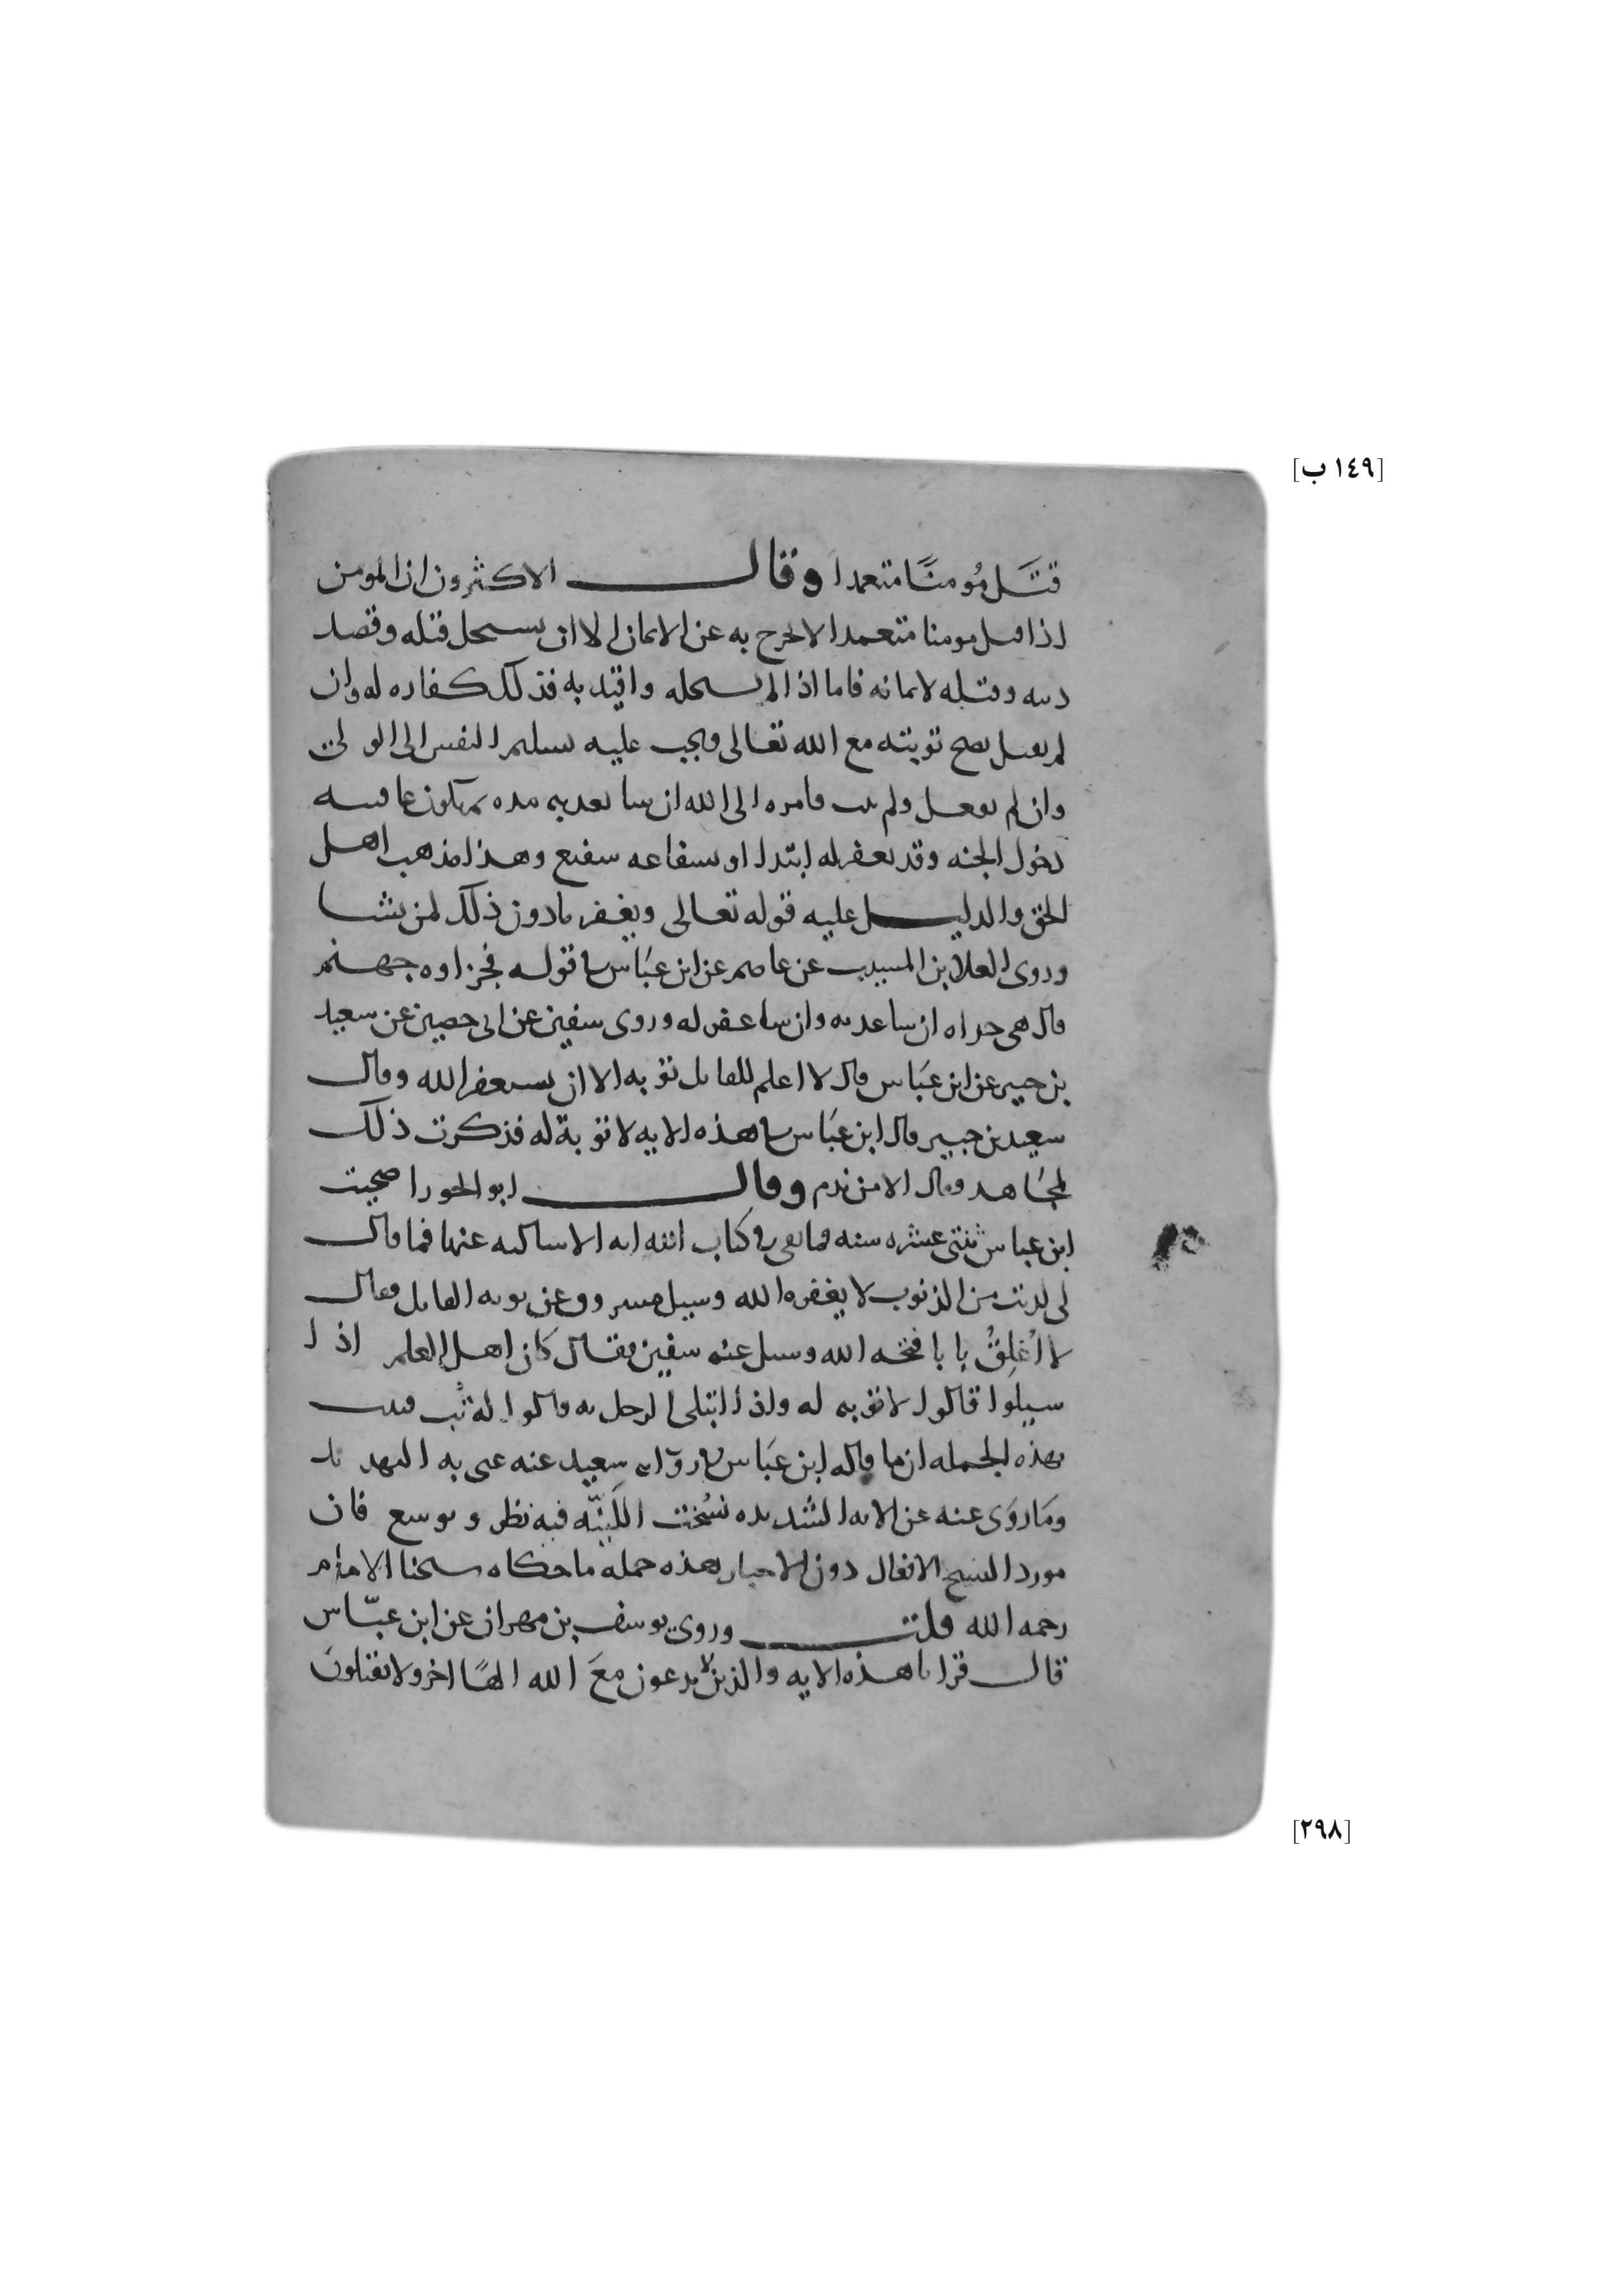 [١٤٩ ب]
قتَل مُومنًا متعمدا وقال الاكثرون ان المومن
اذا قتل مومنا متعمدا لا يخرج به عن الايمان الا ان يستحل قتله وقصد
دينه وقتله لايمانه فاما اذا لم يستحله واقيد به فذلك كفاره له وان
لم يقتل يصح توبته مع الله تعالى ويجب عليه تسليم النفس الى الولي
وان لم يفعل ولم يتب فامره الى الله ان شا يعذبه مده ثم يكون عاقبته
دخول الجنه وقد يغفر له ابتدا او بشفاعه شفيع وهذا مذهب اهل
الحق والدليل عليه قوله تعالى ويغفر ما دون ذلك لمن يشا
وروى العلا بن المسيب عن عاصم عن ابن عبَاس في قوله فجزاوه جهنم
قال هي جزاه ان شا عذبه وان شا غفر له وروى سفين عن ابي حصين عن سعيد
بن جبير عن ابن عبَاس قال لا اعلم للقاتل توبه الا ان يستغفر الله وقال
سعيد بن جبير قال ابن عبَاس في هذه الايه لا توبة له فذكرت ذلك
لمجَاهد فقال الا من ندم وقال ابو الجوزا صحبت
ابن عباس ثنتي عشره سنه فما بقي في كتاب الله ايه الا سالته عنها فما قال
لي لذنب من الذنوب لا يغفره الله وسيل مسروق عن توبه القاتل فقال
لا اُغلِقُ بابا فتحه الله وسيل عنه سفين فقال كان اهل العلم اذا
سيلوا قالوا لا توبه له واذا ابتلى الرجل به قالوا له تُب فثبت
بهذه الجمله ان ما قاله ابن عبَاس في روايه سعيد عنه عنى به التهديد
ومَا روَى عنه عن الايه الشديده نسُخت اللَيِّنَه فيه نظر وتوسع فان
مورد النسخ الافعال دون الاخبار هذه جمله ما حكاه شيخنا الامام
رحمه الله قلت وروى يوسف بن مهران عن ابن عبّاس
قال قرانا هذه الايه والذين لا يدعون معَ الله الهًا اخر ولا يقتلون
[٢٩٨]